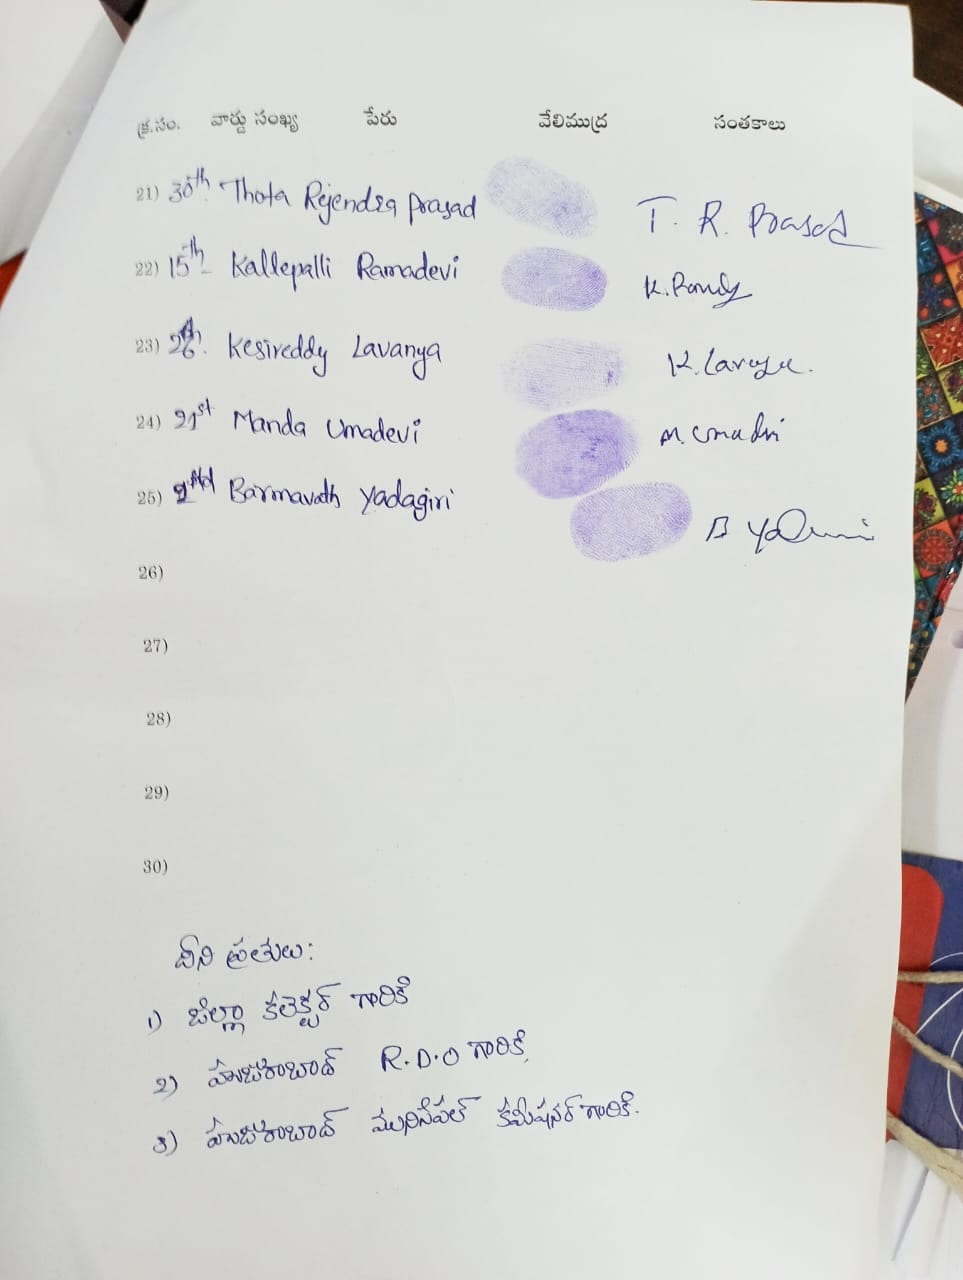 క్ర.సం. వార్డు సంఖ్య పేరు వేలిముద్ర సంతకాలు
21) 30th Thota Rejendra prasad T. R. Prasad
22) 15th Kallepalli Ramadevi
23) Kesireddy Lavanya
24) 21st Manda Umadevi M. Umadvi
25) 2nd Barmavath Yadagiri
26)
27)
28)
29)
30)
దీని ప్రతులు:
1) జిల్లా కలెక్టర్ గారికి
2) హుజురాబాద్ R.D.O గారికి
3) హుజురాబాద్ మునిసిపల్ కమీషనర్ గారికి.